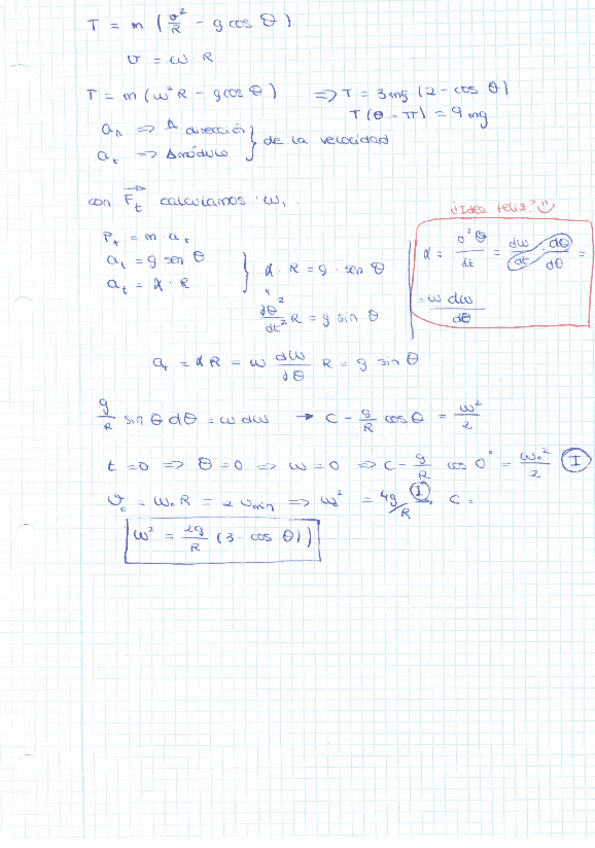 T = m ( v²/R - g cos θ )
v = ω R
T = m (ω² R - g cos θ) => T = 3mg (2 - cos θ)
T (θ = π) = 9 mg
an => Δ dirección } de la velocidad
at => Δ módulo
con Ft calculamos ω,
Pt = m · at
at = g sen θ } α · R = g · sen θ
at = α · R
dθ²/dt² R = g sin θ
¿Idea feliz? :)
α = d²θ/dt = dω/dt · dθ/dθ =
= ω dω/dθ
at = αR = ω dω/dθ R = g sin θ
g/R sin θ dθ = ω dω → C - g/R cos θ = ω²/2
t = 0 => θ = 0 => ω = 0 => C - g/R cos 0° = ω₀²/2 (I)
v₀ = ω₀ R = 2 vmin => ω₀² = 4g/R (I) C =
ω² = 2g/R (3 - cos θ))